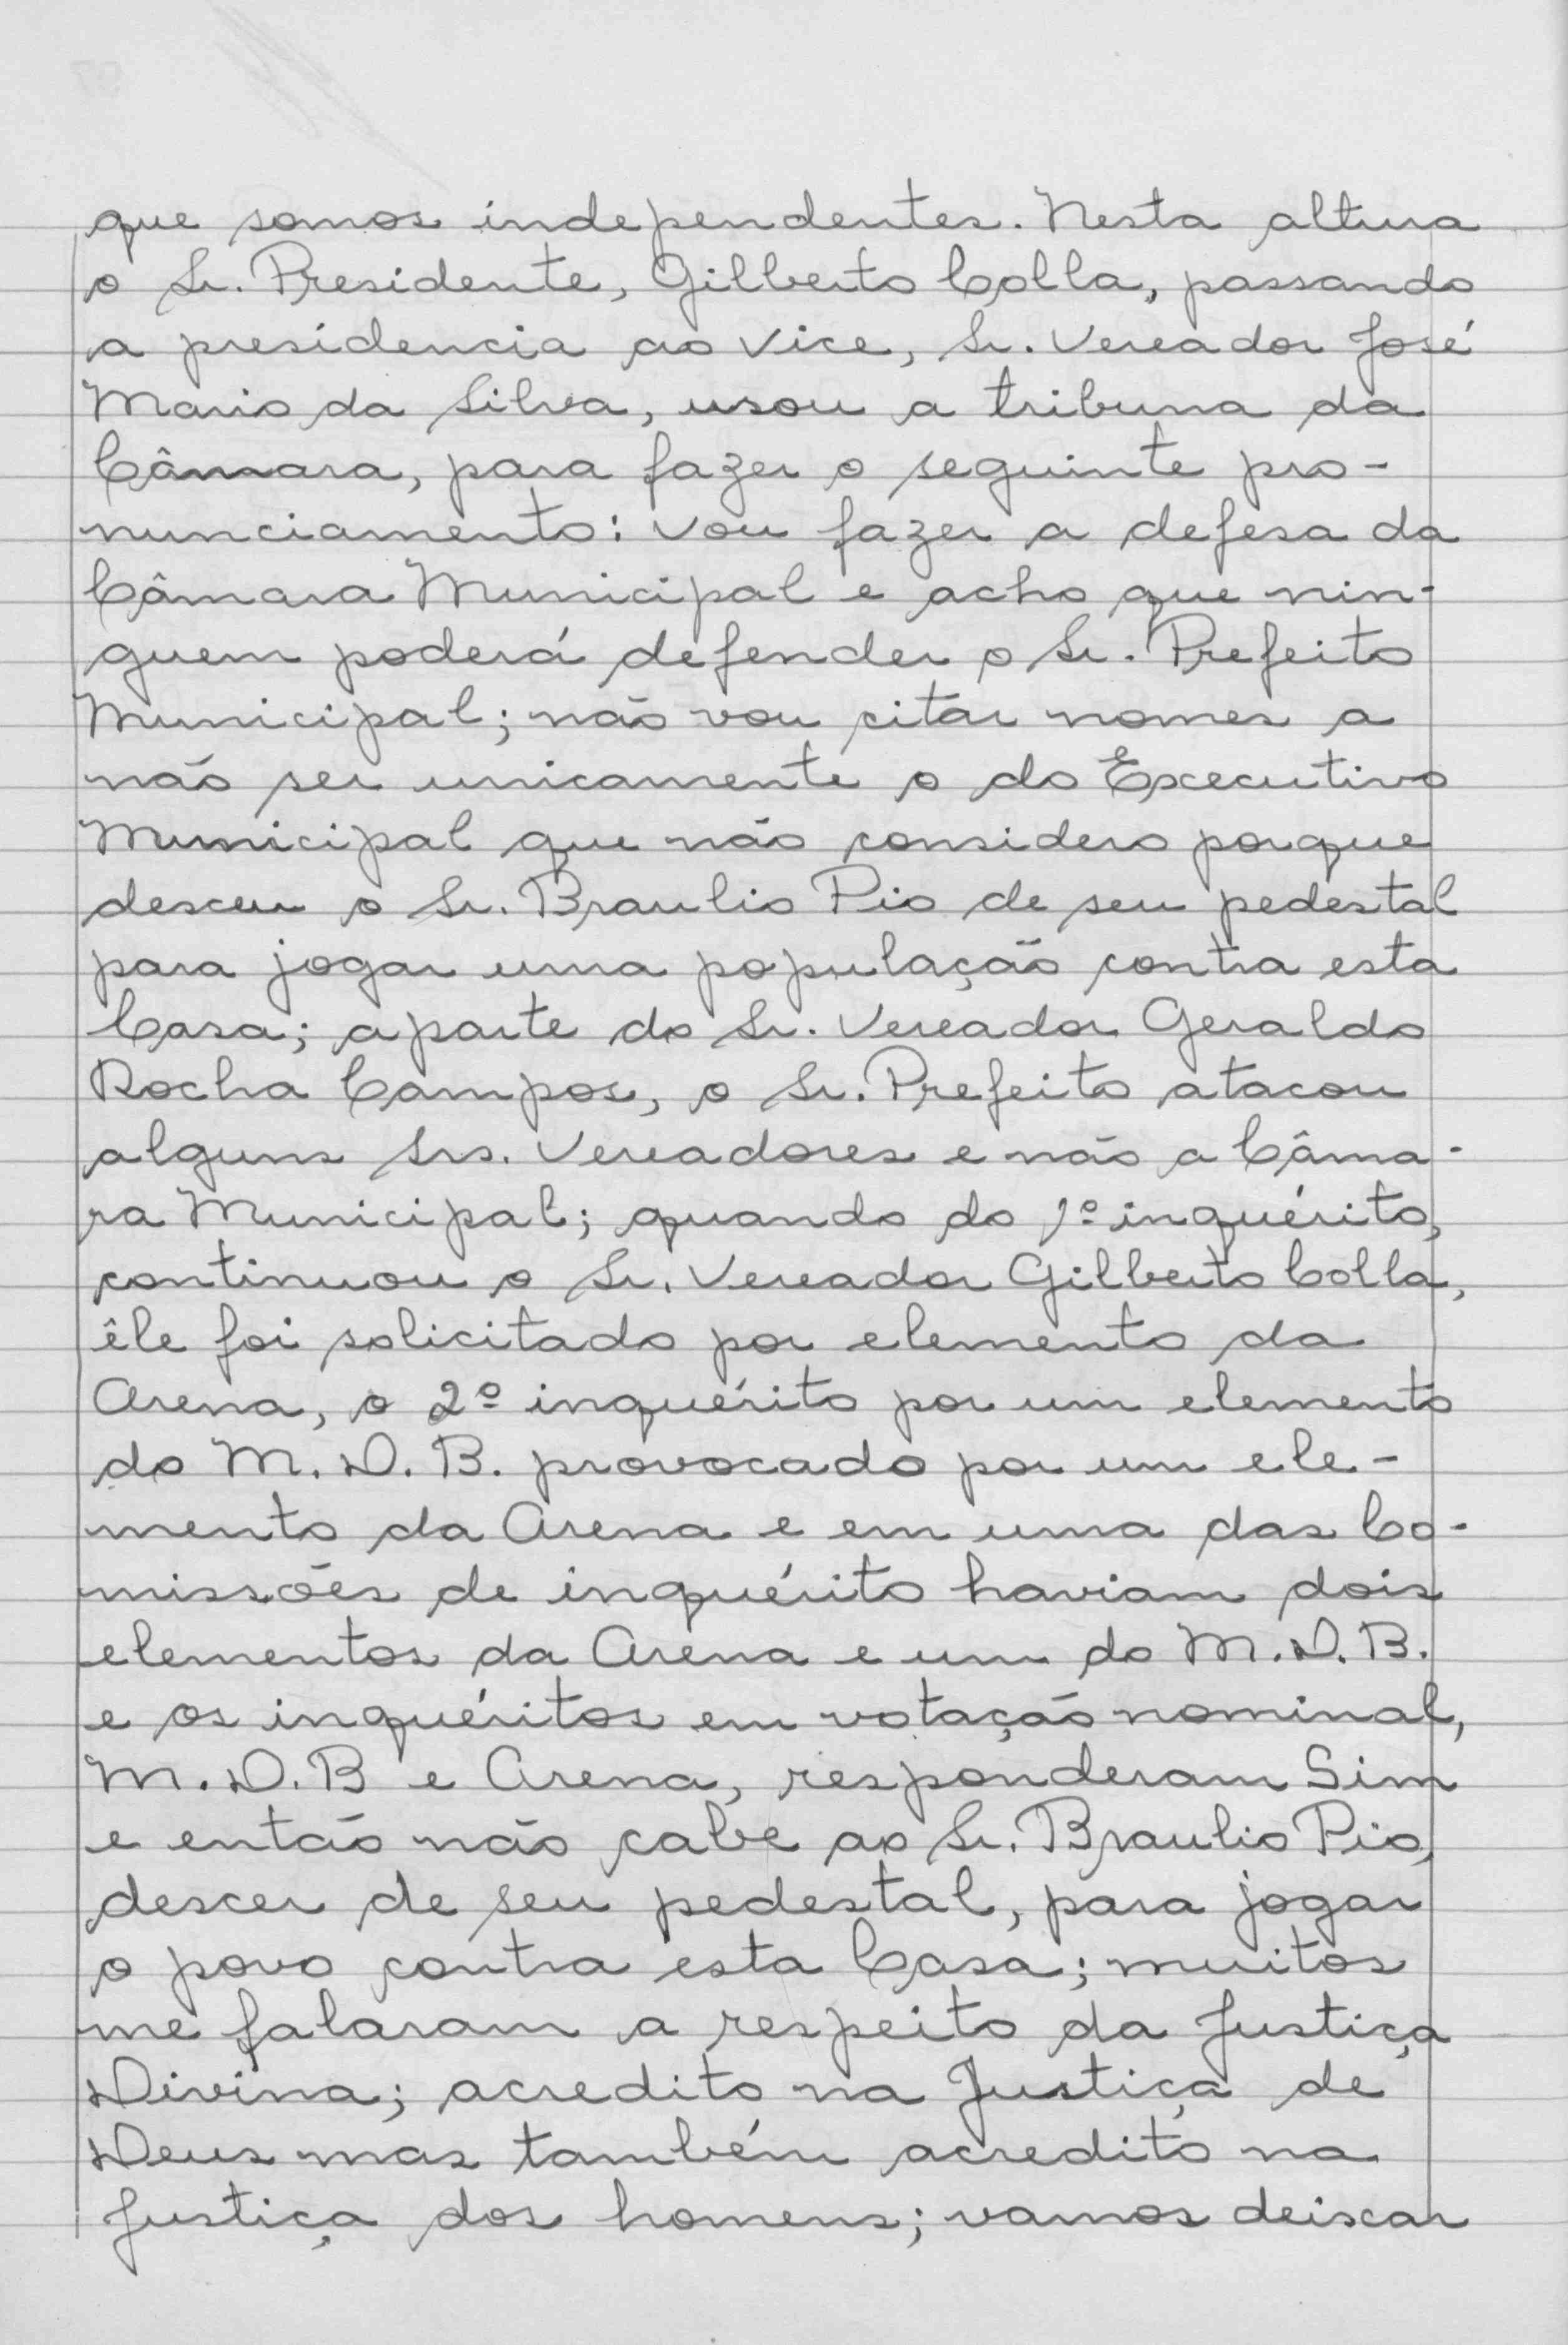 que somos independentes. Nesta altura
o Sr. Presidente, Gilberto Colla, passando
a presidencia ao Vice, Sr. Vereador José
Mario da Silva, usou a tribuna da
Câmara, para fazer o seguinte pro-
nunciamento: Vou fazer a defesa da
Câmara Municipal e acho que nin-
guem poderá defender o Sr. Prefeito
Municipal; não vou citar nomes a
não ser unicamente o do Executivo
Municipal que não considero porque
desceu o Sr. Braulio Pio de seu pedestal
para jogar uma população contra esta
Casa; aparte do Sr. Vereador Geraldo
Rocha Campos, o Sr. Prefeito atacou
alguns Srs. Vereadores e não a Câma-
ra Municipal; quando do 1º inquérito,
continuou o Sr. Vereador Gilberto Colla,
êle foi solicitado por elemento da
Arena, o 2º inquérito por um elemento
do M. D. B. provocado por um ele-
mento da Arena e em uma das Co-
missões de inquérito haviam dois
elementos da Arena e um do M. D. B.
e os inquéritos em votação nominal,
M. D. B e Arena, responderam Sim
e então não cabe ao Sr. Braulio Pio,
descer de seu pedestal, para jogar
o povo contra esta Casa; muitos
me falaram a respeito da Justiça
Divina; acredito na Justiça de
Deus mas também acredito na
Justiça dos homens; vamos deixar